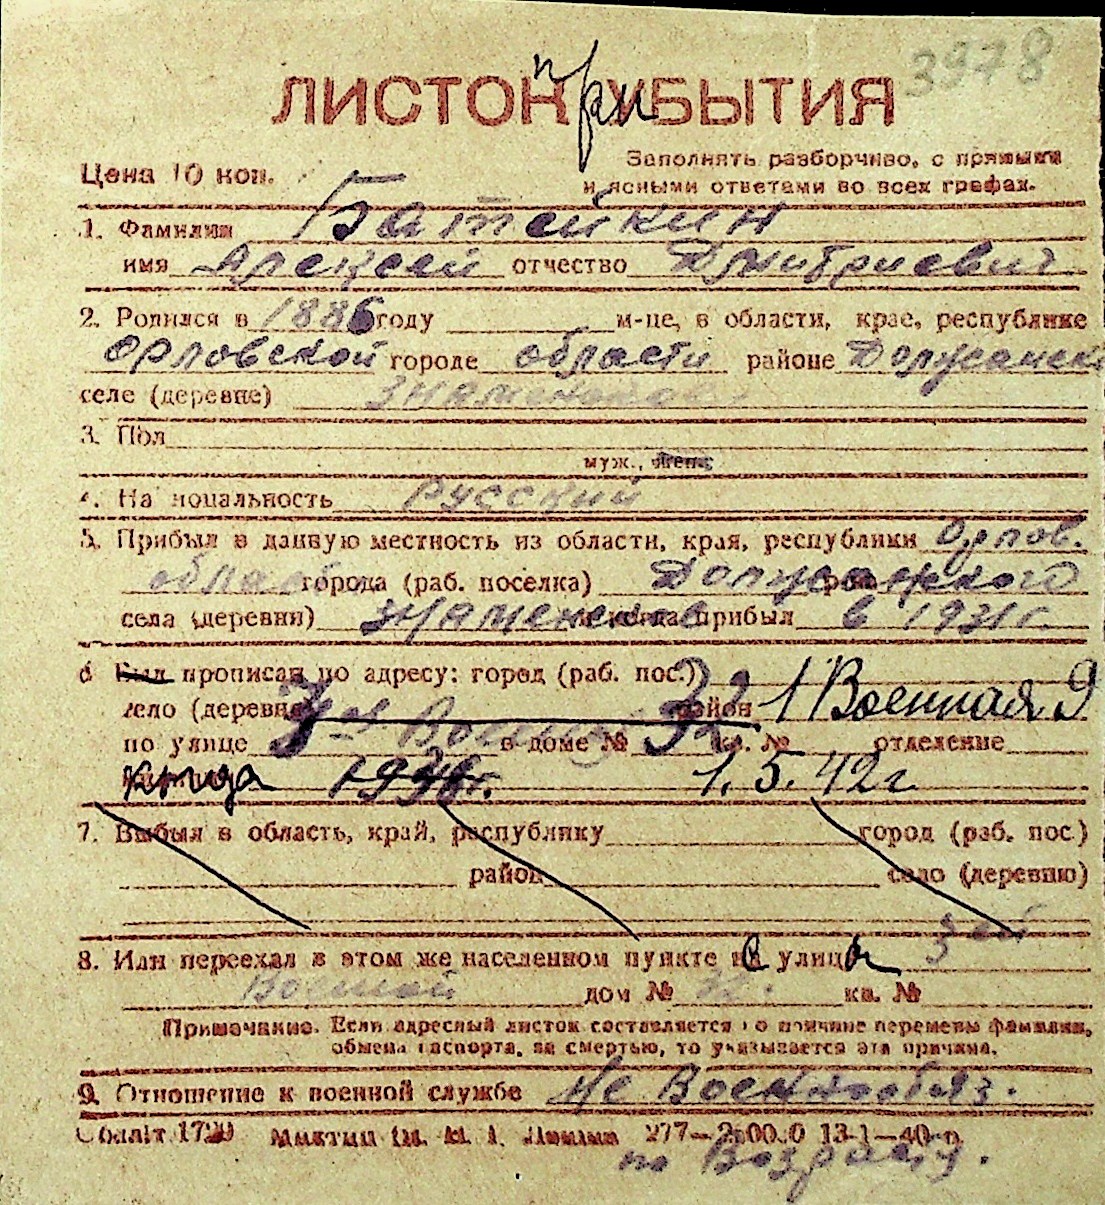 3978
при
ЛИСТОК УБЫТИЯ
Цена 10 коп.
Заполнять разборчиво, с прямыми
и ясными ответами во всех графах.
1. Фамилия Батейкин
имя Алексей отчество Дмитриевич
2. Родился в 1886 году м-це, в области, крае, республике
Орловской городе области районе Должанск
селе (деревне)
3. Пол
муж., жен.
4. Национальность русский
5. Прибыл в данную местность из области, края, республики Орлов.
области города (раб. поселка) Должанского
села (деревни) Знаменское и когда прибыл в 1931 г.
6 Был прописан по адресу: город (раб. пос.)
село (деревне) район 1 Военная 9
по улице 3я Военная в доме № 32 кв. № отделение
1.5.42 г
7. Выбыл в область, край, республику город (раб. пос.)
район село (деревню)
8. Или переехал в этом же населенном пункте с улицы 3ей
Военной дом № 32. кв. №
Примечание. Если адресный листок составляется по причине перемены фамилии,
обмена паспорта, за смертью, то указывается эта причина.
9. Отношение к военной службе не Военнообяз.
277— 13-1—40 г.
по Возрасту.